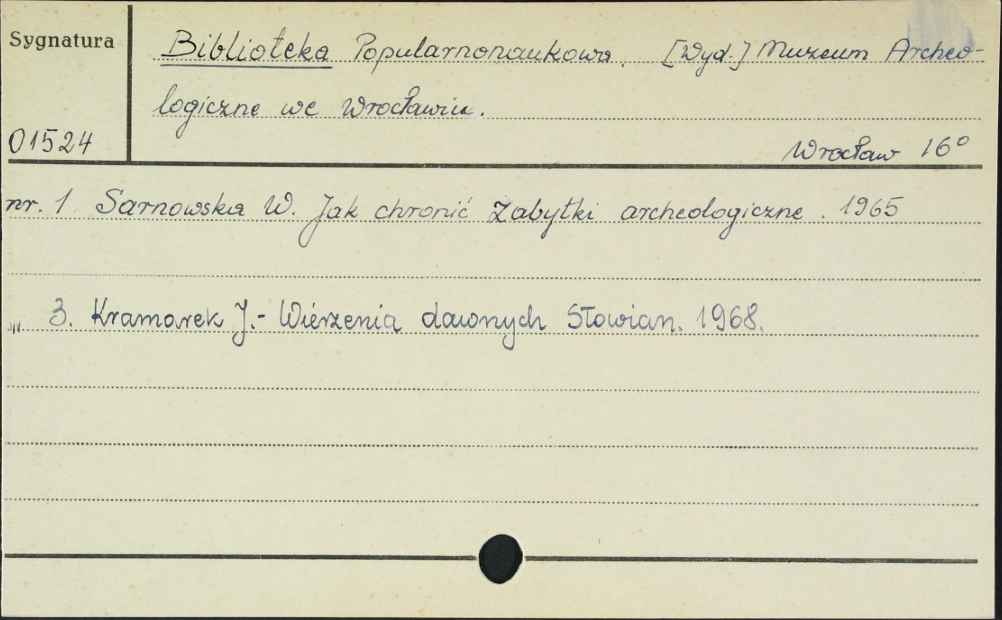 Sygnatura
Biblioteka Popularnonaukowa. [Wyd.] Muzeum Archeo-
logiczne we Wrocławiu.
01524
Wrocław 16°
nr. 1 Sarnowska W. Jak chronić zabytki archeologiczne. 1965
„ 3. Kramarek J.- Wierzenia dawnych Słowian. 1968.